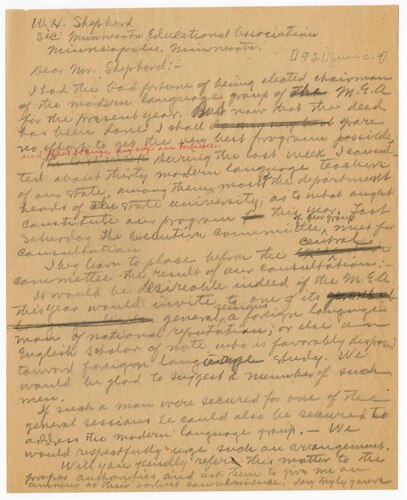 W. H. Shepherd
Sec. Minnesota Educational Association
Minneapolis, Minnesota.
[1921, June 9]
Dear Mr. Shepherd:-
I had the bad fortune of being elected chairman
of the modern language group of the M.E.A
for the present year. But now that the deed
has been done I shall spare
no efforts to get the very best program possible
and
During the last week I consul-
ted about thirty modern language teachers
of our state, among them most of the department
heads of the state university, as to what ought
constitute our program this year. Last
Saturday the executive committee of our group met for
consultation.
I beg leave to place before the central
committee the result of our consultation:-
It would be desireable indeed if the M.E.A
this year would invite to one of its
general sessions a foreign language
man of national reputation; or else an
English scholar of note who is favorably disposed
toward foreign language study. We
would be glad to suggest a number of such
men.
If such a man were secured for one of the
general sessions he could also be secured to
address the modern language group. — We
would respectfully urge such an arrangement.
Will you kindly refer this matter to the
proper authorities and ask them to give me an
answer at their earliest convenience. Very truly yours